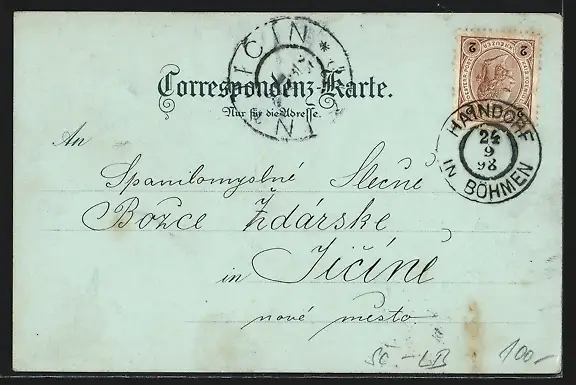 JIČÍN * JIN
Correspondenz-Karte.
Nur für die Adresse.
2 2
HAINDORF
24
9
98
IN BÖHMEN
An
Spanilomyslné Slečně
Božce Žďárske
in Jičíně
nové město
SC - LB
100-